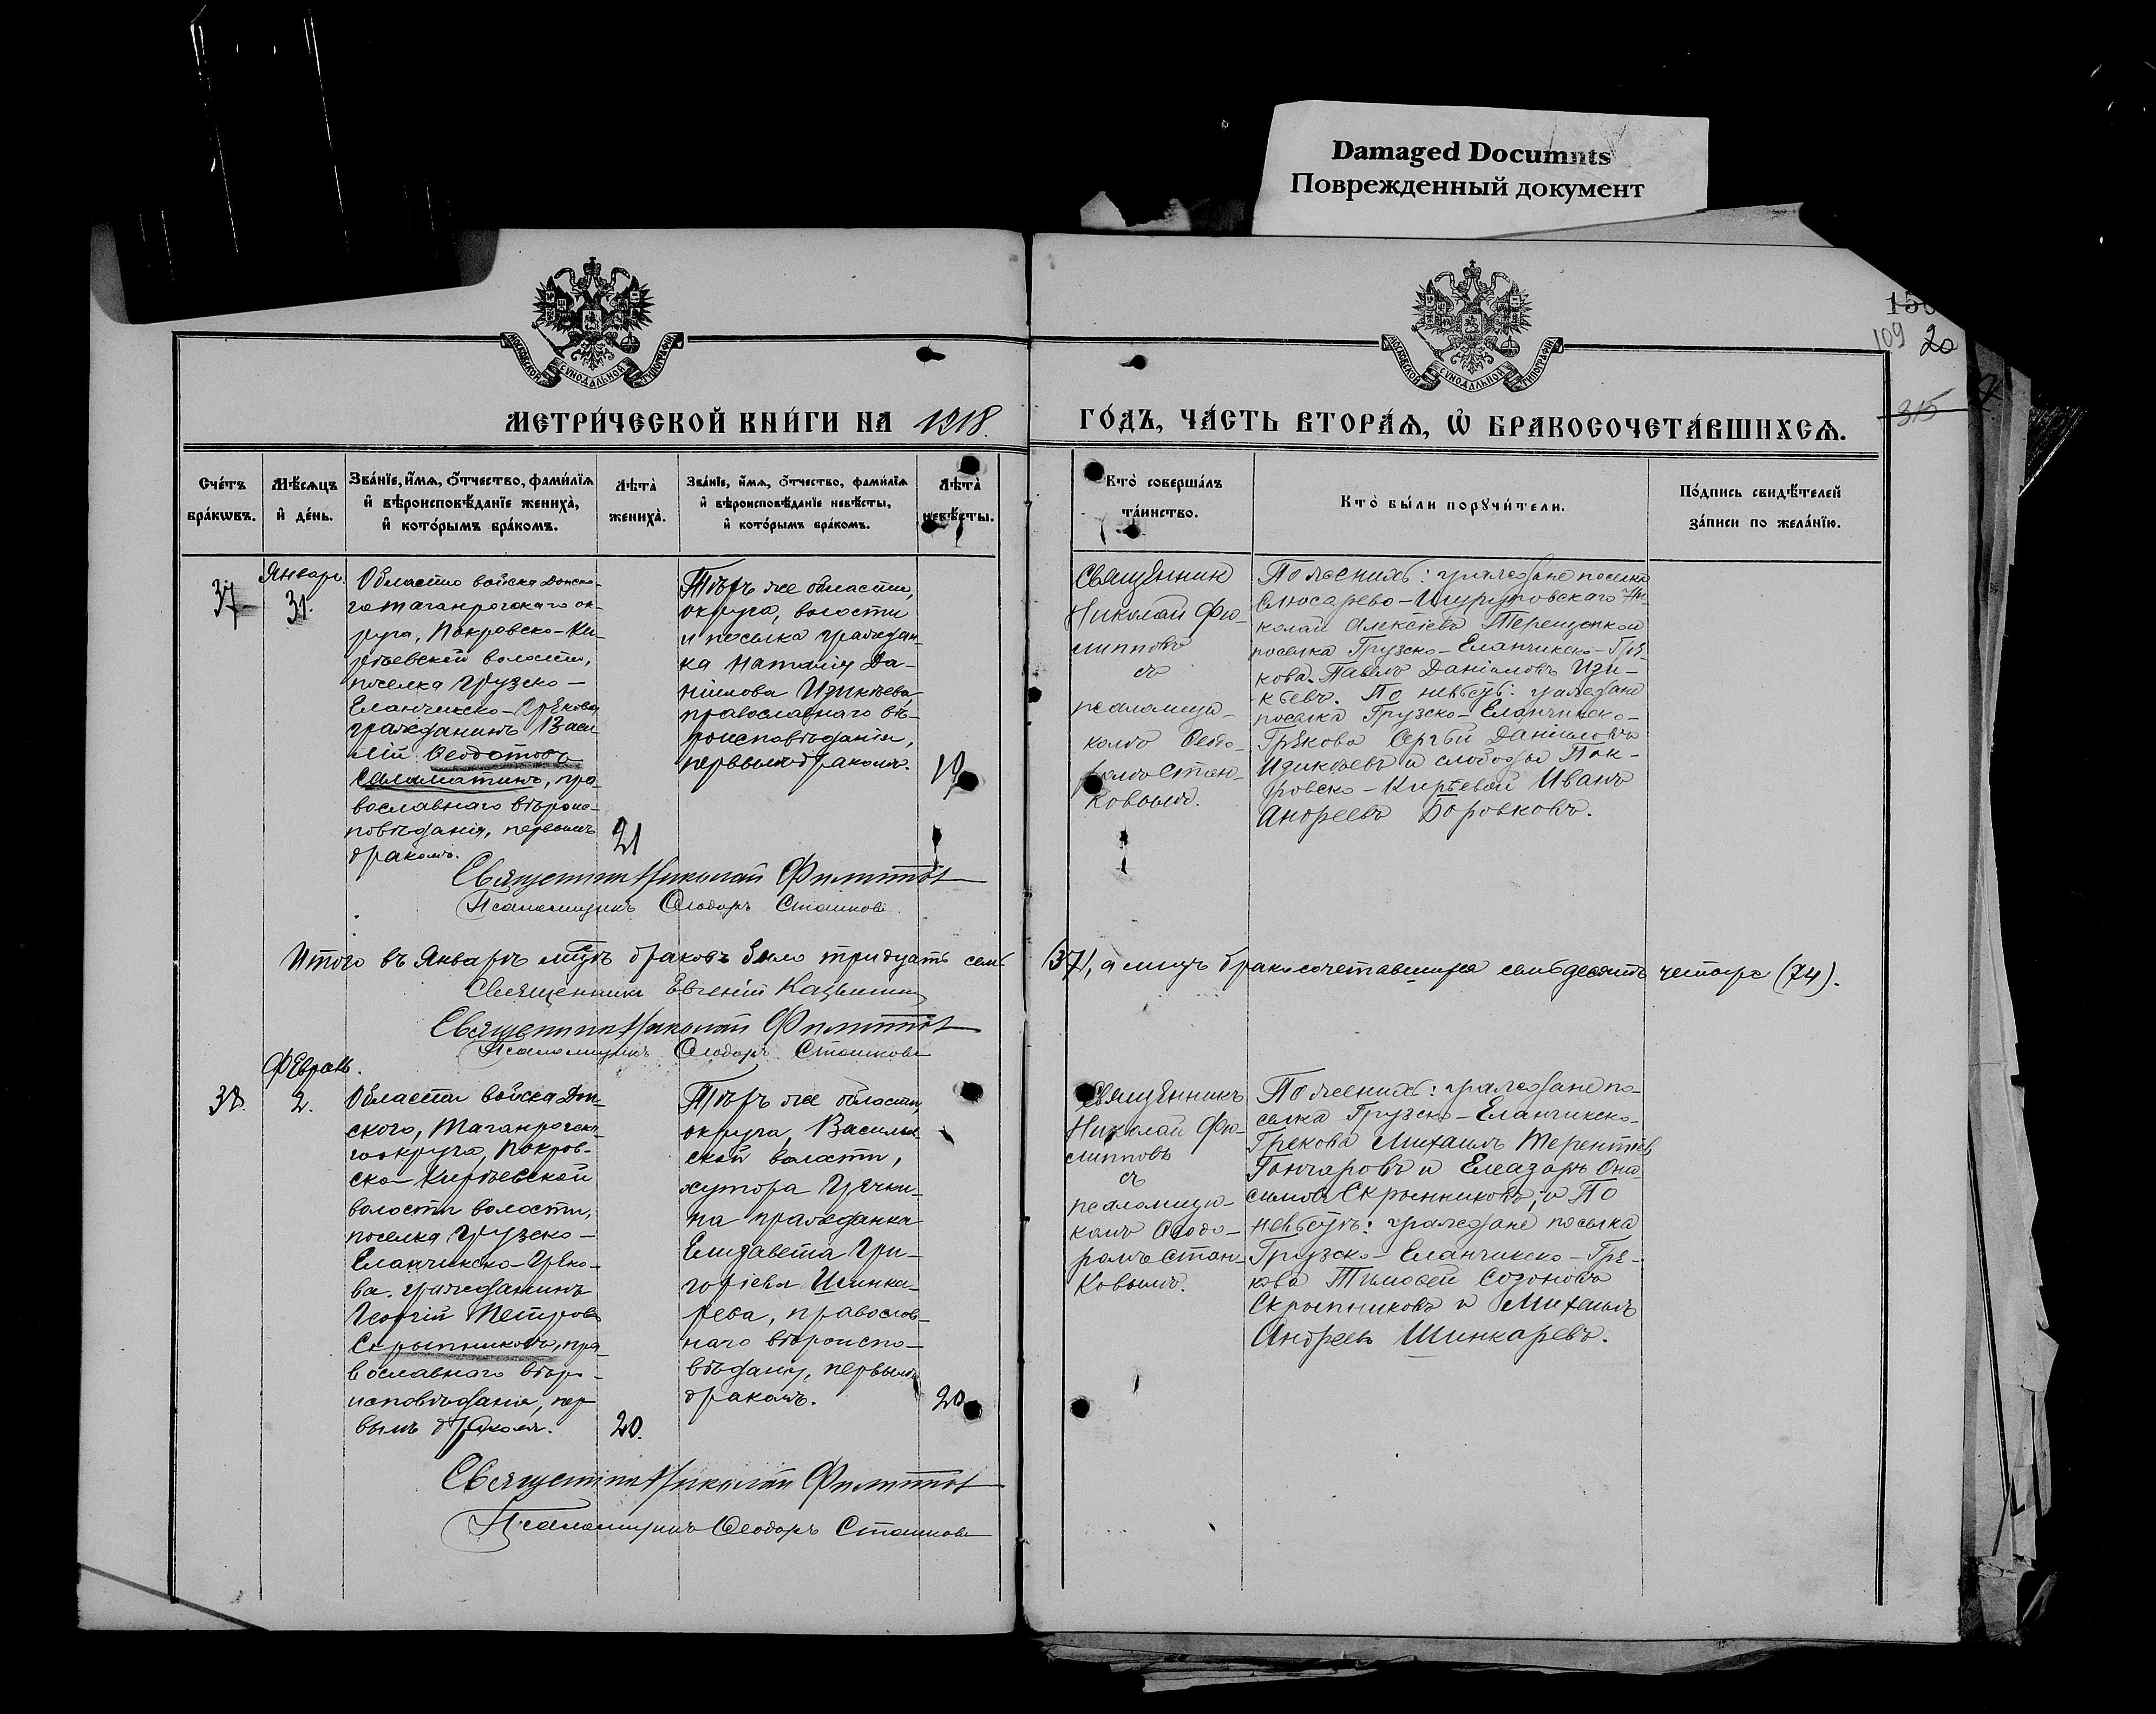 Damaged Documnts
Поврежденный документ
109 20
315
МОСКОВСКОЙ СѴНОДАЛЬНОЙ ТИПОГРАФІИ
МОСКОВСКОЙ СѴНОДАЛЬНОЙ ТИПОГРАФІИ
МЕТРИ́ЧЕСКОЙ КНИ́ГИ НА 1918.
ГО́ДЪ, ЧА́СТЬ ВТОРА́Ѧ, Ѡ҆ БРАКОСОЧЕТА́ВШИХСѦ.
Сче́тъ бра́кѡвъ.
Мѣ́сѧцъ и҆ де́нь.
Зва́нїе, и҆́мѧ, ѻ҆́тчество, фами́лїѧ
и҆ вѣроисповѣ́данїе женихà,
и҆ кото́рымъ бра́комъ.
Лѣ́та̀ женихà.
Зва́нїе, и҆́мѧ, ѻ҆́тчество, фами́лїѧ
и҆ вѣроисповѣ́данїе невѣ́сты,
и҆ кото́рымъ бра́комъ.
Лѣ́та̀ невѣ́сты.
Кто̀ соверша́лъ
та́инство.
Кто̀ бы́ли порꙋчи́тели.
По́дпись свидѣ́телей
за́писи по жела́нїю.
37
Январь
31.
Области войска Донско-
го Таганрогскаго ок-
руга, Покровско-Ки-
рѣевской волости,
поселка Грузско-
Еланчикско-Грѣкова
гражданинъ Васи
лій Ѳеодотовъ
Саломатинъ, пра-
вославнаго вѣроис-
повѣданія, первымъ
бракомъ.
21
Тѣхъ же области,
округа, волости
и поселка граждан
ка Наталія Да-
ніилова Изикѣева
православнаго вѣ-
роисповѣданія,
первымъ бракомъ.
Священник
Николай Фи-
липповъ
съ
псаломщи-
комъ Ѳеодо-
ромъ Стан-
ковымъ.
По женихѣ: граждане поселка
колай Алексѣевъ Терещенко и
поселка Грузско-Еланчикско-Грѣ-
кова Павелъ Даніиловъ Изи-
кѣевъ. По невѣстѣ: граждане
поселка Грузско-Еланчикско-
Грѣкова Сергѣй Даніиловъ
Изикѣевъ и слободы Пок-
ровско-Кирѣевой Иванъ
Андреевъ Боровковъ.
Священник Николай Филиппов
Псаломщикъ Ѳеодоръ Станковъ
Итого въ Январѣ мцѣ браковъ было тридцать семь
(37), а лицъ бракосочетавшихся семьдесятъ четыре (74).
Священникъ Евгеній
Священник Николай Филиппов
Псаломщикъ Ѳеодоръ Станковъ
Февраль.
38.
2.
Области войска Дон-
ского, Таганрогска-
го округа, Покров-
ско-Кирѣевской
волости волости,
поселка Грузско-
Еланчикско-Грѣко-
ва гражданинъ
Георгій Петровъ
Скрыпниковъ, пра-
вославнаго вѣро-
исповѣданія, пер-
вымъ бракомъ.
20.
Тѣхъ же области,
округа, Васильев
ской волости,
хутора Цячки-
на гражданка
Елизавета Гри-
горіева Шинка-
рева, православ-
наго вѣроиспо-
вѣданія, первымъ
бракомъ.
20
Священникъ
Николай Фи-
липповъ
съ
псаломщи-
комъ Ѳеодо-
ромъ Стан-
ковымъ.
По женихѣ: граждане по-
селка Грузско-Еланчикско-
Грекова Михаилъ Терентіев
Гончаровъ и Елеазаръ Она
симовъ Скрынниковъ, и По
невѣстѣ: граждане поселка
Грузско-Еланчикско-Грѣ-
кова Тимоѳей Созоновъ
Скрыпниковъ и Михаилъ
Андреевъ Шинкаревъ.
Священник Николай Филиппов
Псаломщикъ Ѳеодоръ Станковъ